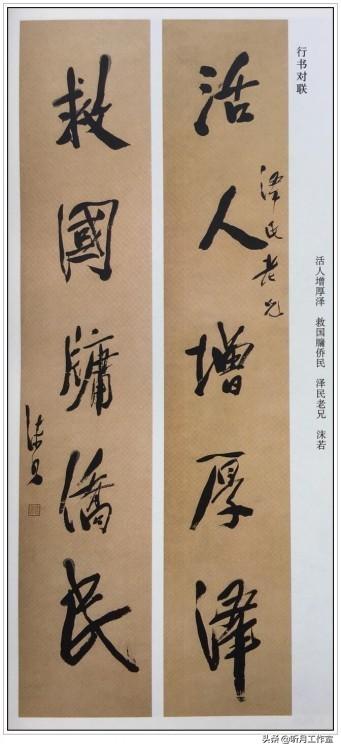 行书对联
活人增厚泽　救国牗侨民　泽民老兄　沫若
活人增厚澤
澤民老兄
救國牗僑民
沫若
头条 @听月工作室